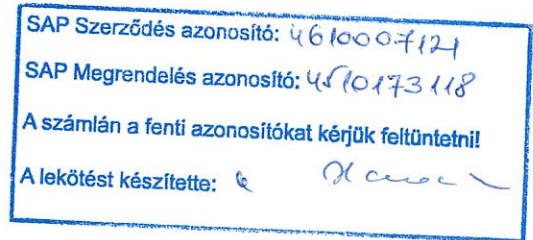 SAP Szerződés azonosító: 4610007121
SAP Megrendelés azonosító: 4510173118
A számlán a fenti azonosítókat kérjük feltüntetni!
A lekötést készítette: